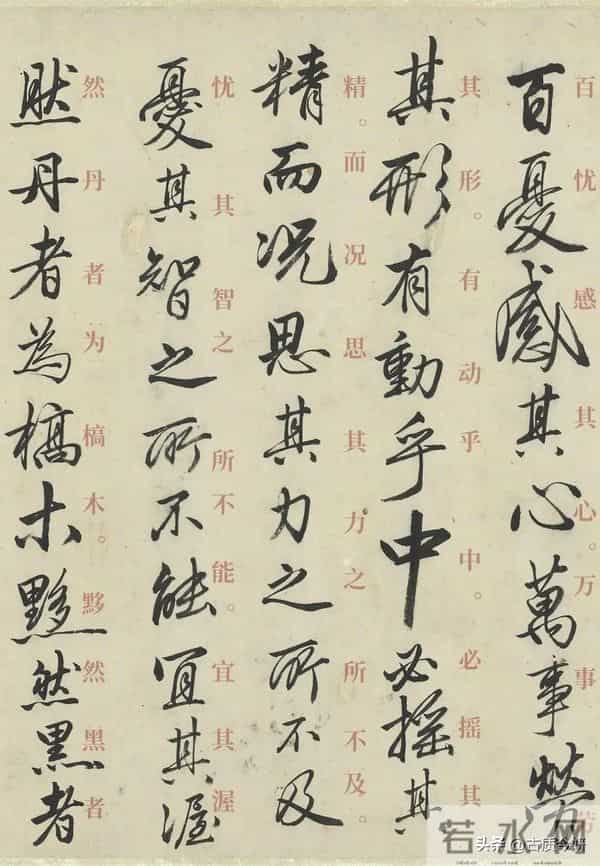 百忧感其心。万事劳
百憂感其心萬事勞
其形。有动乎中。必摇其
其形有動乎中必摇其
精。而况思其力之所不及。
精而况思其力之所不及
忧其智之所不能。宜其渥
憂其智之所不能宜其渥
然丹者为槁木。黟然黑者
然丹者為槁木黟然黑者
若水网
头条 @古质今妍